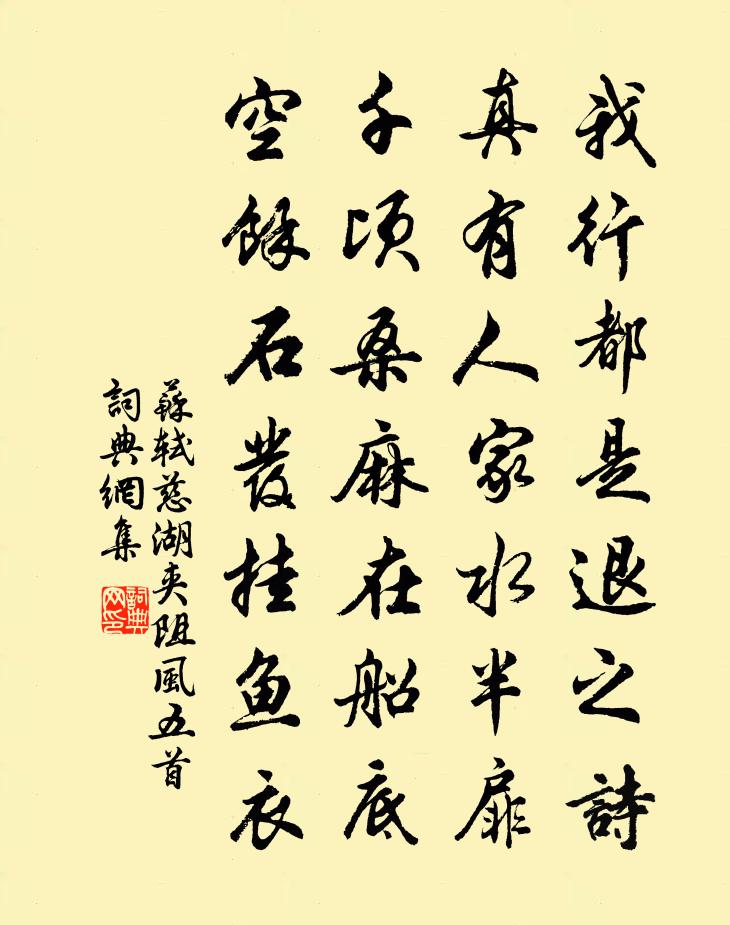 我行都是退之詩
真有人家水半扉
千頃桑麻在船底
空餘石發挂鱼衣
蘇軾慈湖夾阻風五首
詞典網集
詞典网印